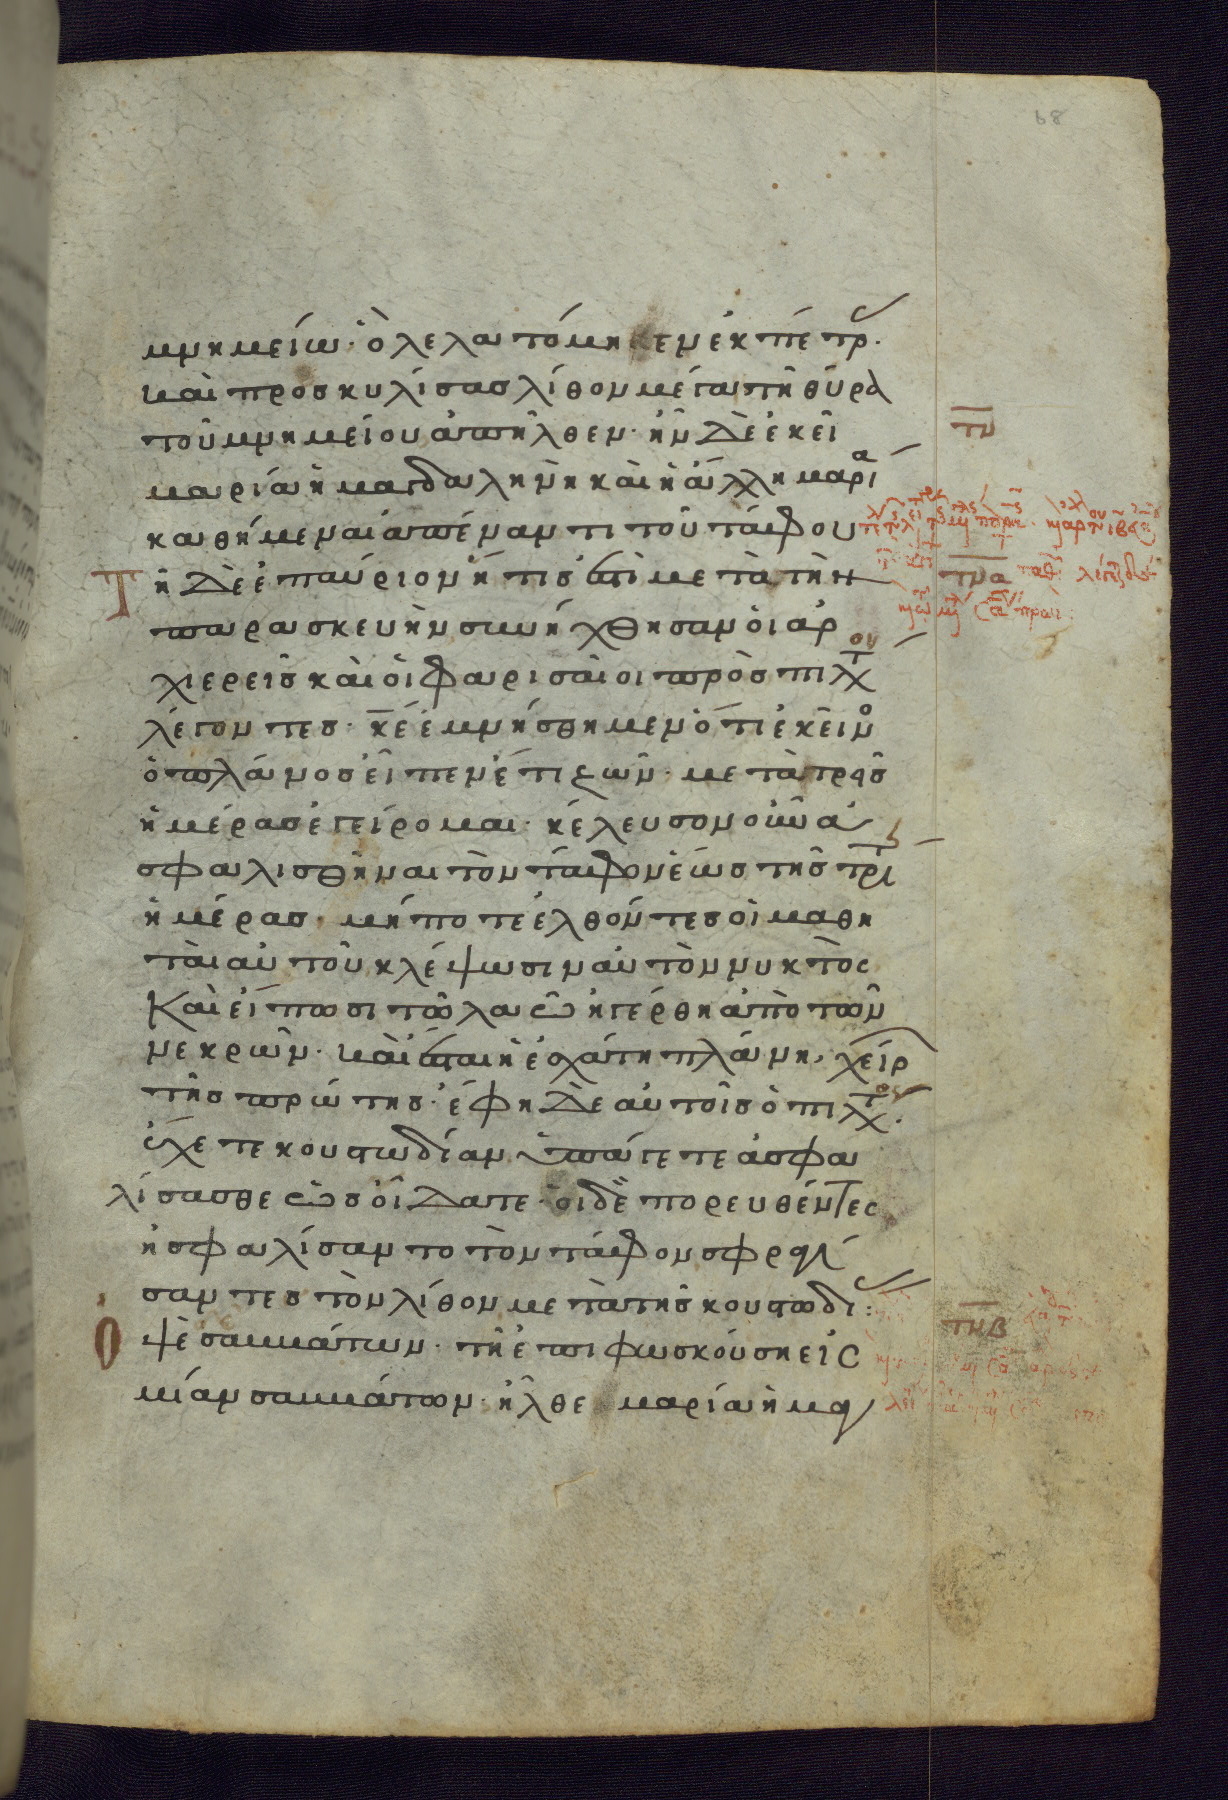 68
μνημείω· ὃ ἐλατόμησεν ἐκ πέτρ.
καὶ προσκυλίσας λίθον μέγα τῆ θύρα
τοῦ μνημείου ἀπῆλθεν· ἦν δὲ ἐκεῖ
μαρία ἡ μαγδαληνὴ καὶ ἡ ἄλλη μαρία
καθήμεναι ἀπέναντι τοῦ τάφου
Τῆ δὲ ἐπαύριον ἥτις ἐστὶ μετὰ τὴν
παρασκευὴν συνήχθησαν οἱ ἀρ
χιερεῖς καὶ οἱ φαρισαῖοι πρὸς πιλτου
λέγοντες· κε ἐμνήσθημεν ὅτι ἐκεῖνο
ὁ πλάνος εἶπεν ἔτι ζῶν· μετὰ τρεῖς
ἡμέρας ἐγείρομαι· κέλευσον οὖν ἀ
σφαλισθῆναι τὸν τάφον ἕως τῆς τρίτ
ἡμέρας· μήποτε ἐλθόντες οἱ μαθη
ταὶ αὐτοῦ κλέψωσιν αὐτὸν νυκτὸς
Καὶ εἴπωσι τῶ λαῶ ἠγέρθη ἀπὸ τῶν
νεκρῶν· καὶ ἔσται ἡ ἐσχάτη πλάνη, χείρ
τῆς πρώτης· ἔφη δὲ αὐτοῖς ὁ πιλτος.
ἔχετε κουστωδίαν ὑπάγετε ἀσφα
λίσασθε ὡς οἴδατε· οἱ δὲ πορευθέντες
ἠσφαλίσαντο τὸν τάφον σφραγί
σαντες τὸν λίθον μετὰ τῆς κουστωδί:
Ὀψὲ σαββάτων· τῆ ἐπιφωσκούση εἰς
μίαν σαββάτων· ἦλθε μαρία ἡ μαγ
τν
τνα
τνβ